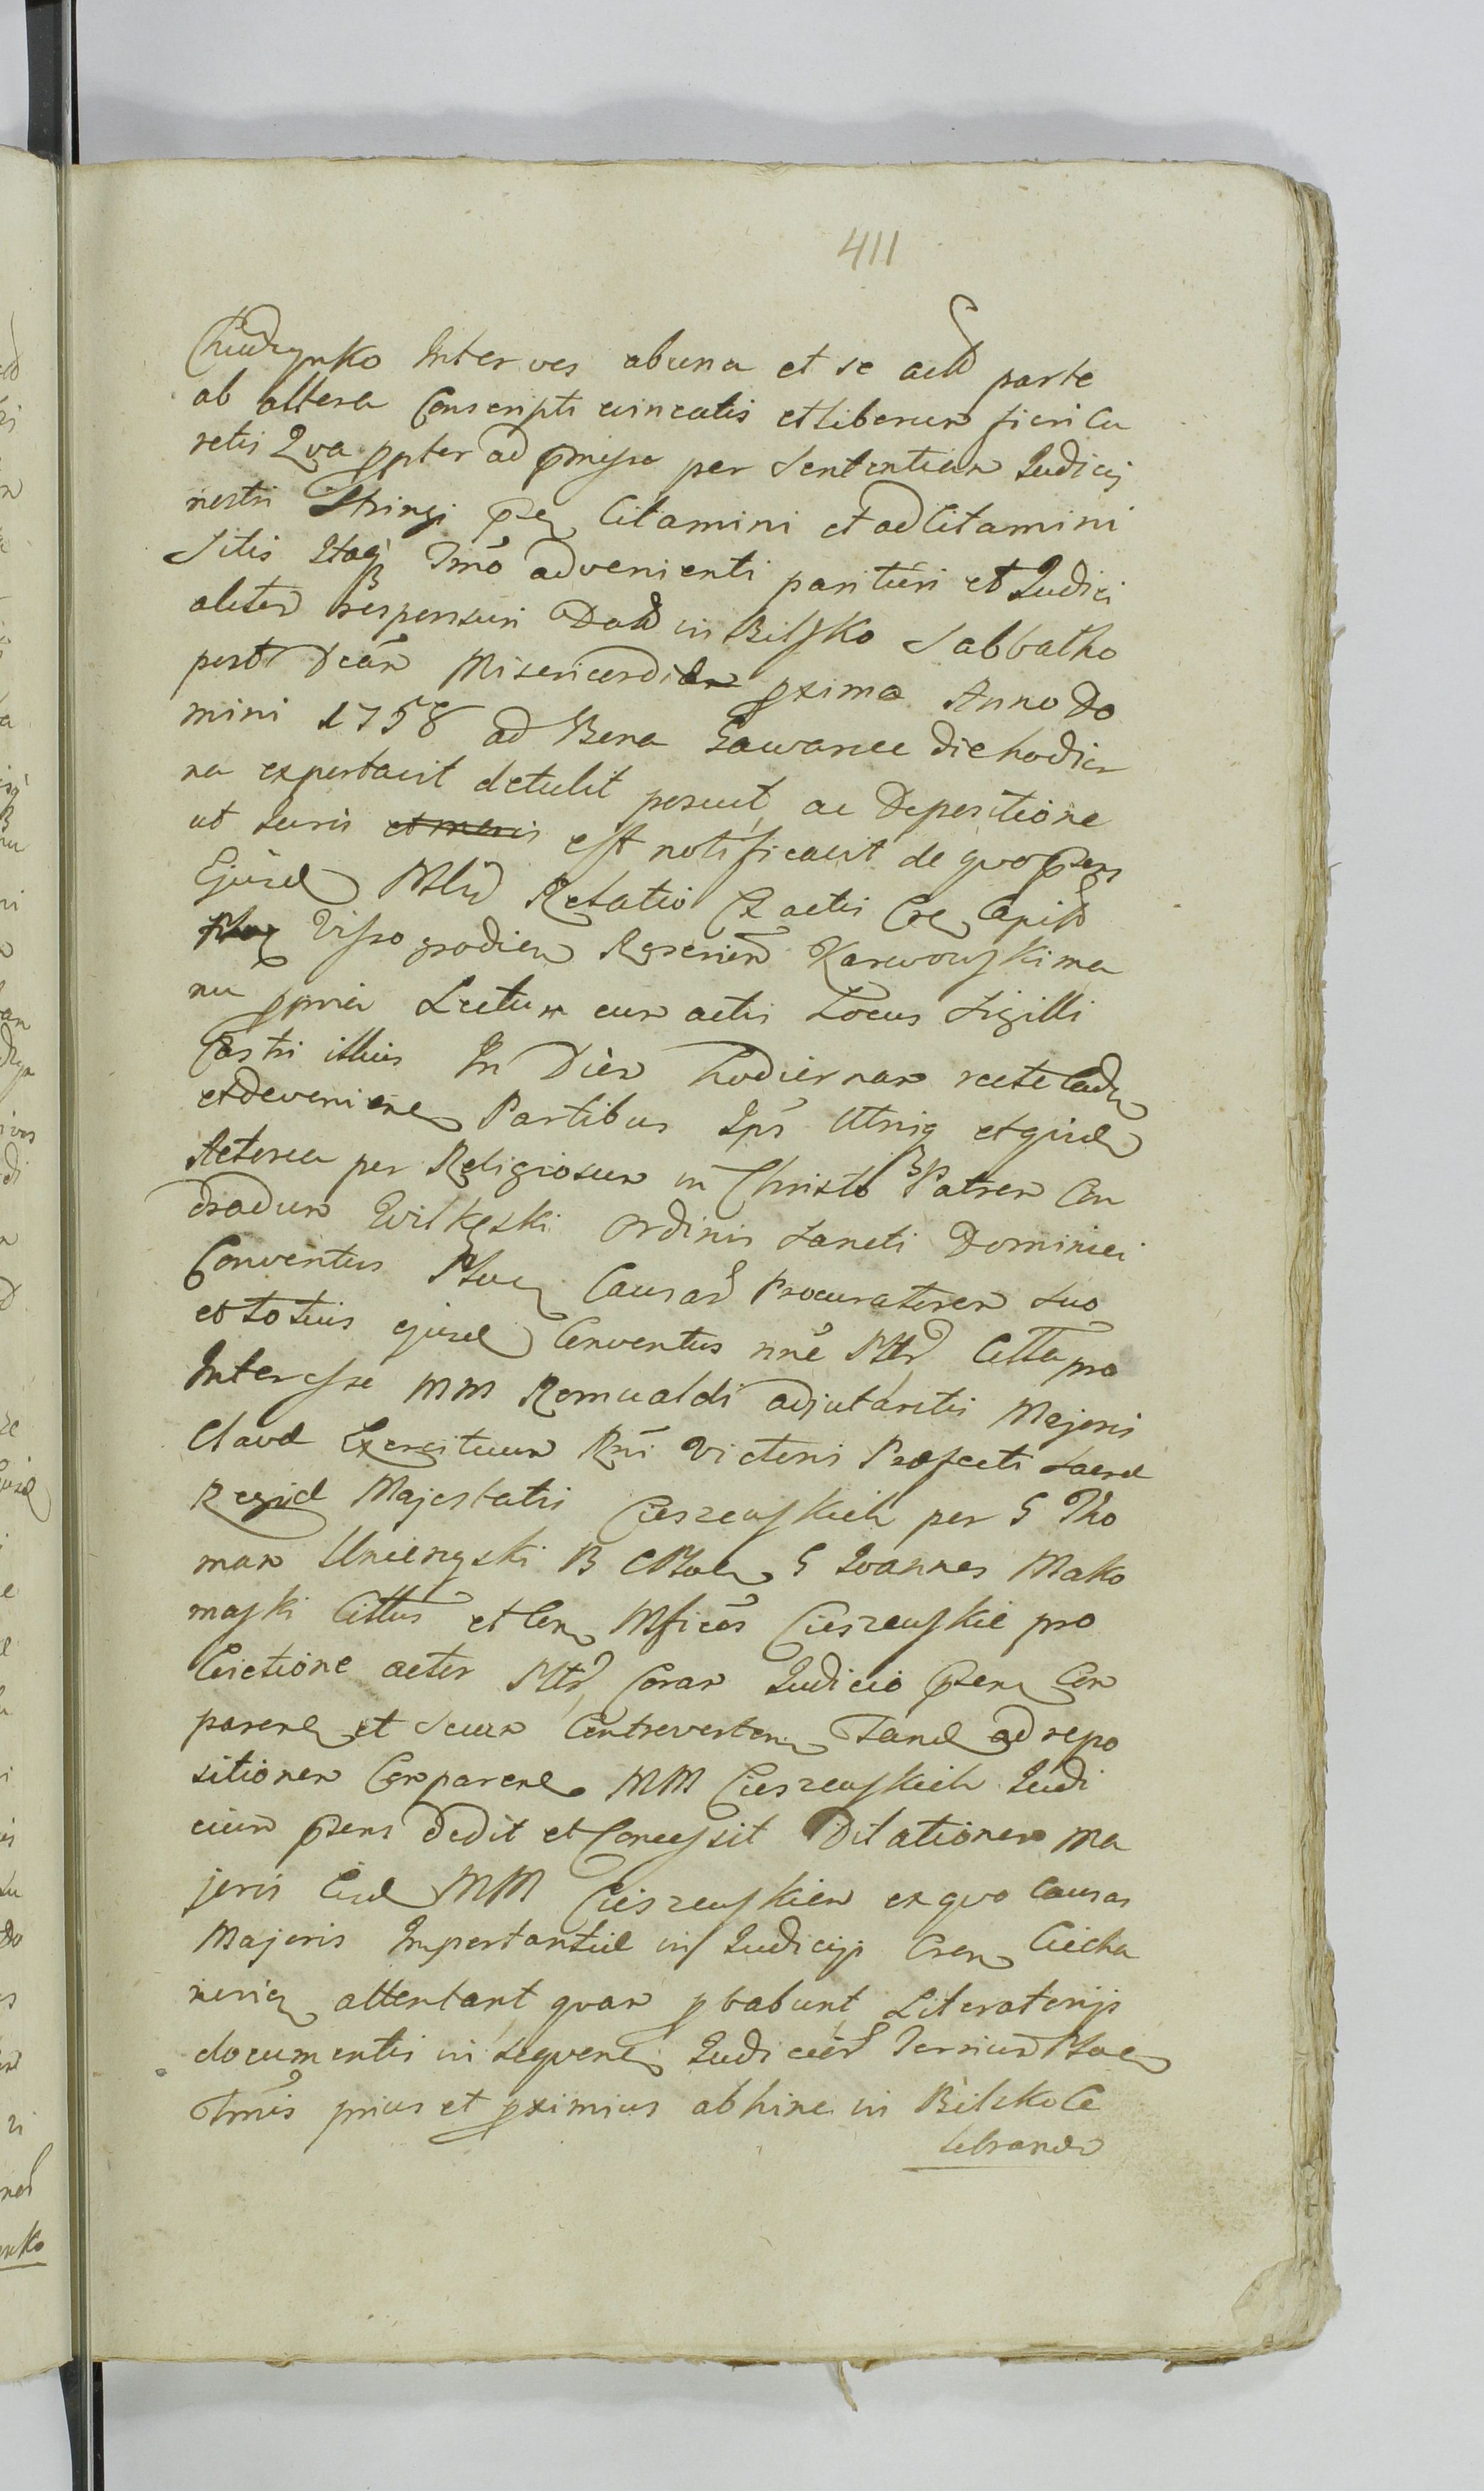 411
Chudzynko Inter vos ab una et se act parte
ab altera Conscripti evincatis et liberum fieri Cu
retis Qva ppter ad pmissa per Sententiam Judicij
nostri Stringi Citamini et ad Citamini
Sitis Itaq Tmo advenienti parituri et Judici
aliter responsuri Dat in Bilsko Sabbatho
post Dcam Misericordia pxima Anno Do
mini 1758 ad Bona Gawarzec die hodier
na exportavit detulit posuit, ac Depositione
ut Juris est notificavit de quo psens
Ejusd Mltd Relatio Ex actis Cre Capit
Vissogrodien Rgserien Karwowski ma
nu ppria Lectum cum actis Locus Sigilli
Castri illius In Diem hodiernam recte Cade
et deveniene Partibus Ips Utriq et quid
Actorea per Religiosum in Christo Patrem Con
dradum Wilkęski Ordinis Sancti Dominici
Conventus Ploc Causar Procuratorem Suo
et totius ejusd Conventus nne Mtr Citta pro
Interesse MM Romualdi adjutantis Majoris
Clavae Exercituum Rni Victoris Praefecti Sacrae
Regiae Majestatis Cieszewskich per G Tho
mam Unierzyski B CPloc G Joannes Mako
maski Cittus et Con Mficos Cieszewskie pro
Evictione actor Mtr Coram Judicio psen Com
parene et Secum Controverten Tand ad repo
sitionem Comparene MM Cieszewskich Judi
cium psens dedit et Concessit Dilationem Ma
joris Eisd MM Cieszewskiem ex quo Causas
Majoris Importantiae in Judicijs Cren Ciecha
novien attentant quam pbabunt Literatorijs
documentis in seqvene Judicior Terrium Ploc
Tmis prius et pximius abhinc in Bilsko Ce
lebrand